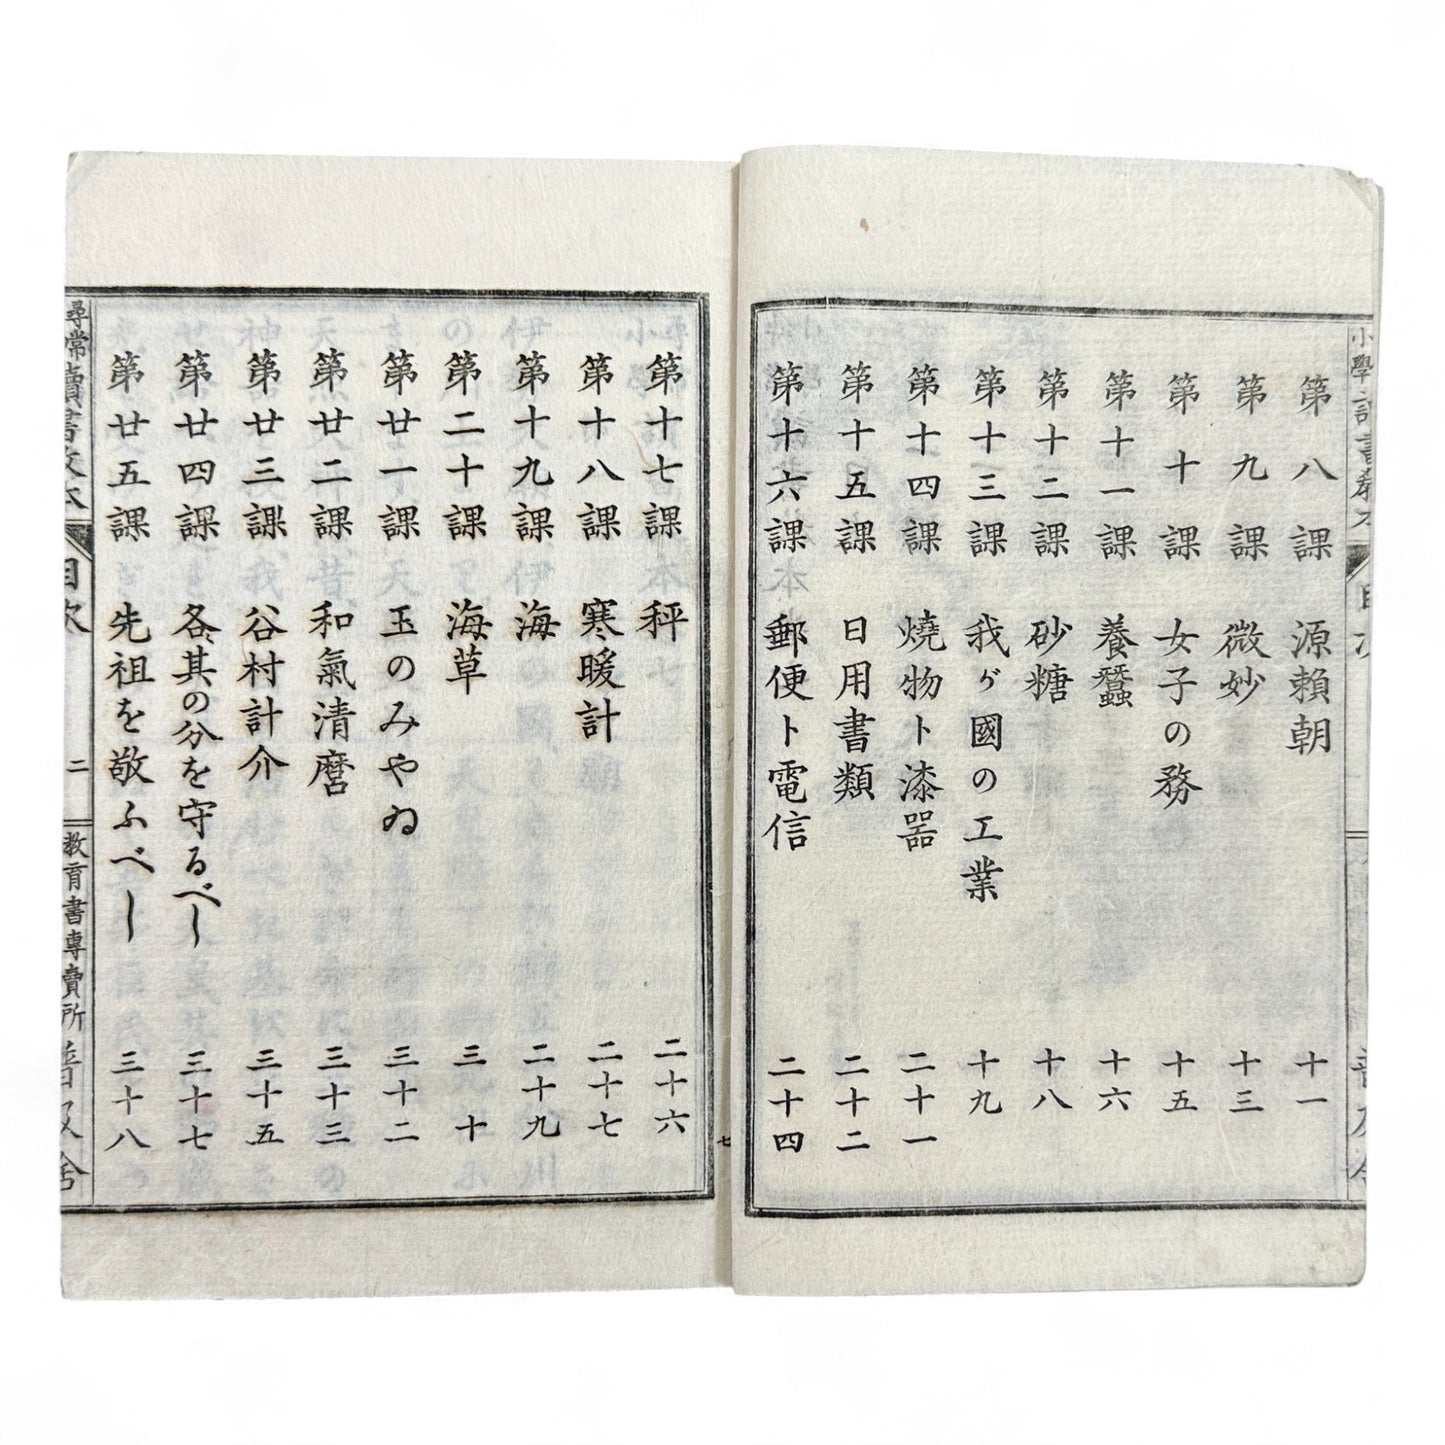 第八課 源賴朝 十一
第九課 微妙 十三
第十課 女子の務 十五
第十一課 養蠶 十六
第十二課 砂糖 十八
第十三課 我ゲ國の工業 十九
第十四課 燒物ト漆器 二十一
第十五課 日用書類 二十二
第十六課 郵便ト電信 二十四
七
第十七課 秤 二十六
第十八課 寒暖計 二十七
第十九課 海 二十九
第二十課 海草 三十
第廿一課 玉のみやゐ 三十二
第廿二課 和氣清麿 三十三
第廿三課 谷村計介 三十五
第廿四課 各其の分を守るべし 三十七
第廿五課 先祖を敬ふべし 三十八
尋常讀書教本 目次 二 教育書專賣所 普及舍